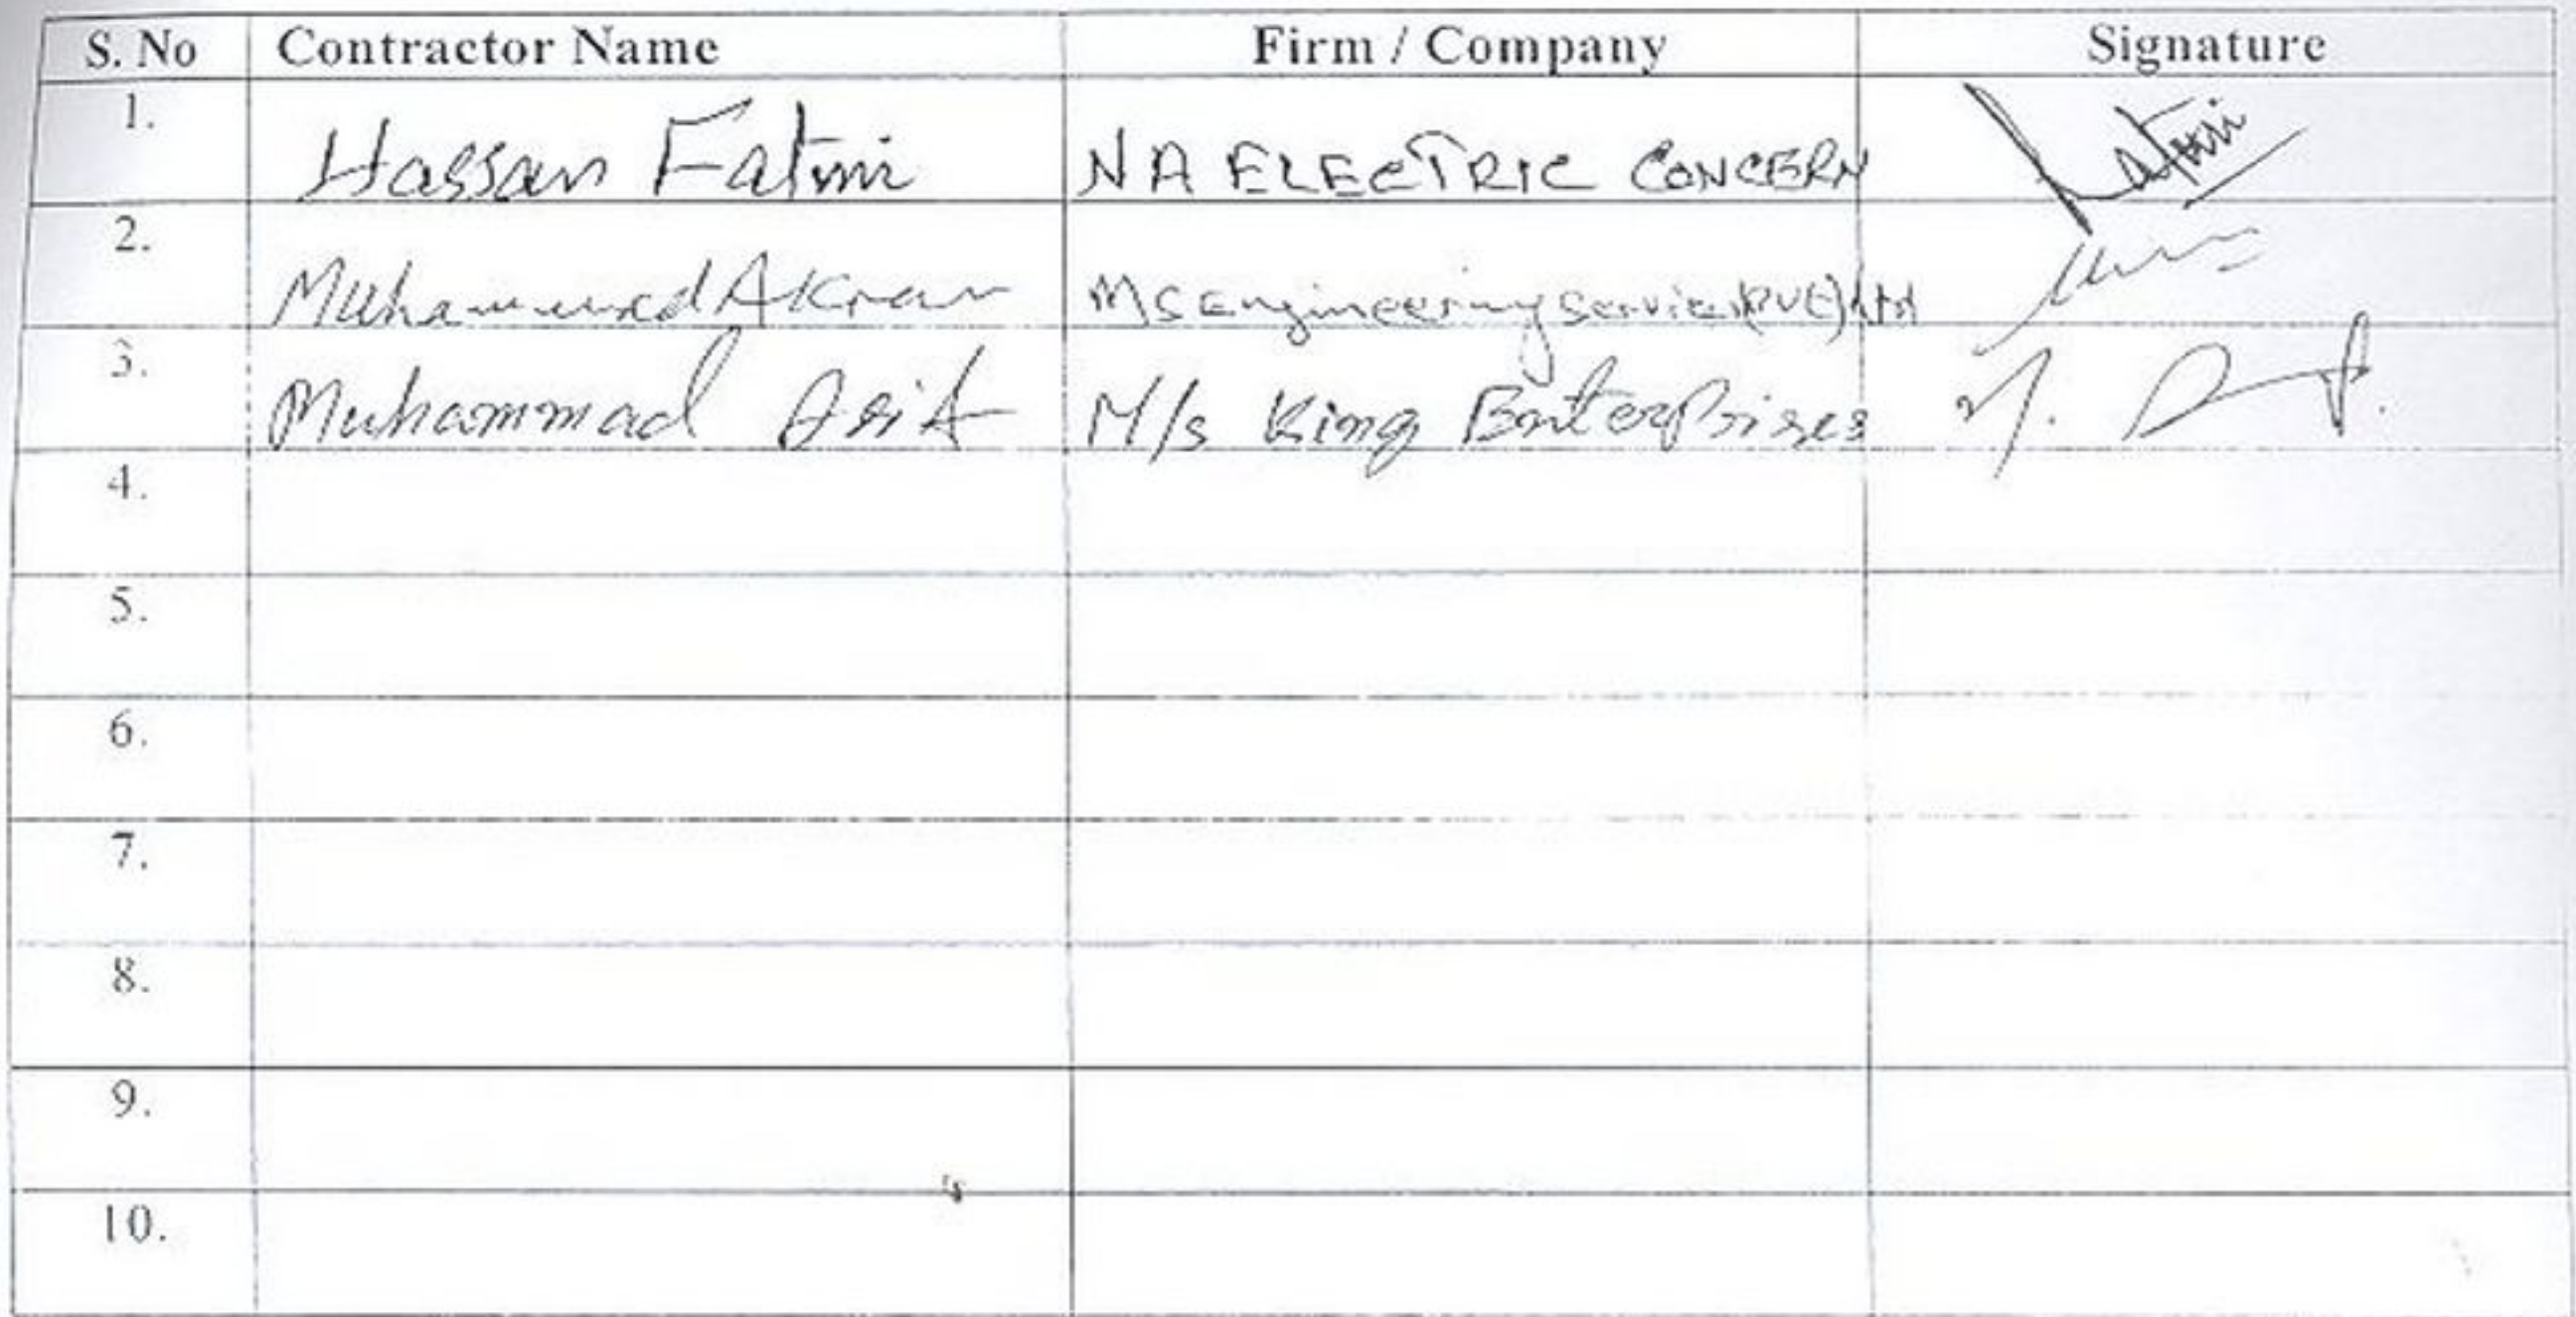 S. No Contractor Name Firm / Company Signature
1. Hassan Fatmi NA ELECTRIC CONCERN Fatmi
2. Muhammad Akram MS Engineering Service (PVE) Ltd
3. Muhammad Asif M/s King EnterPrises
4.
5.
6.
7.
8.
9.
10.